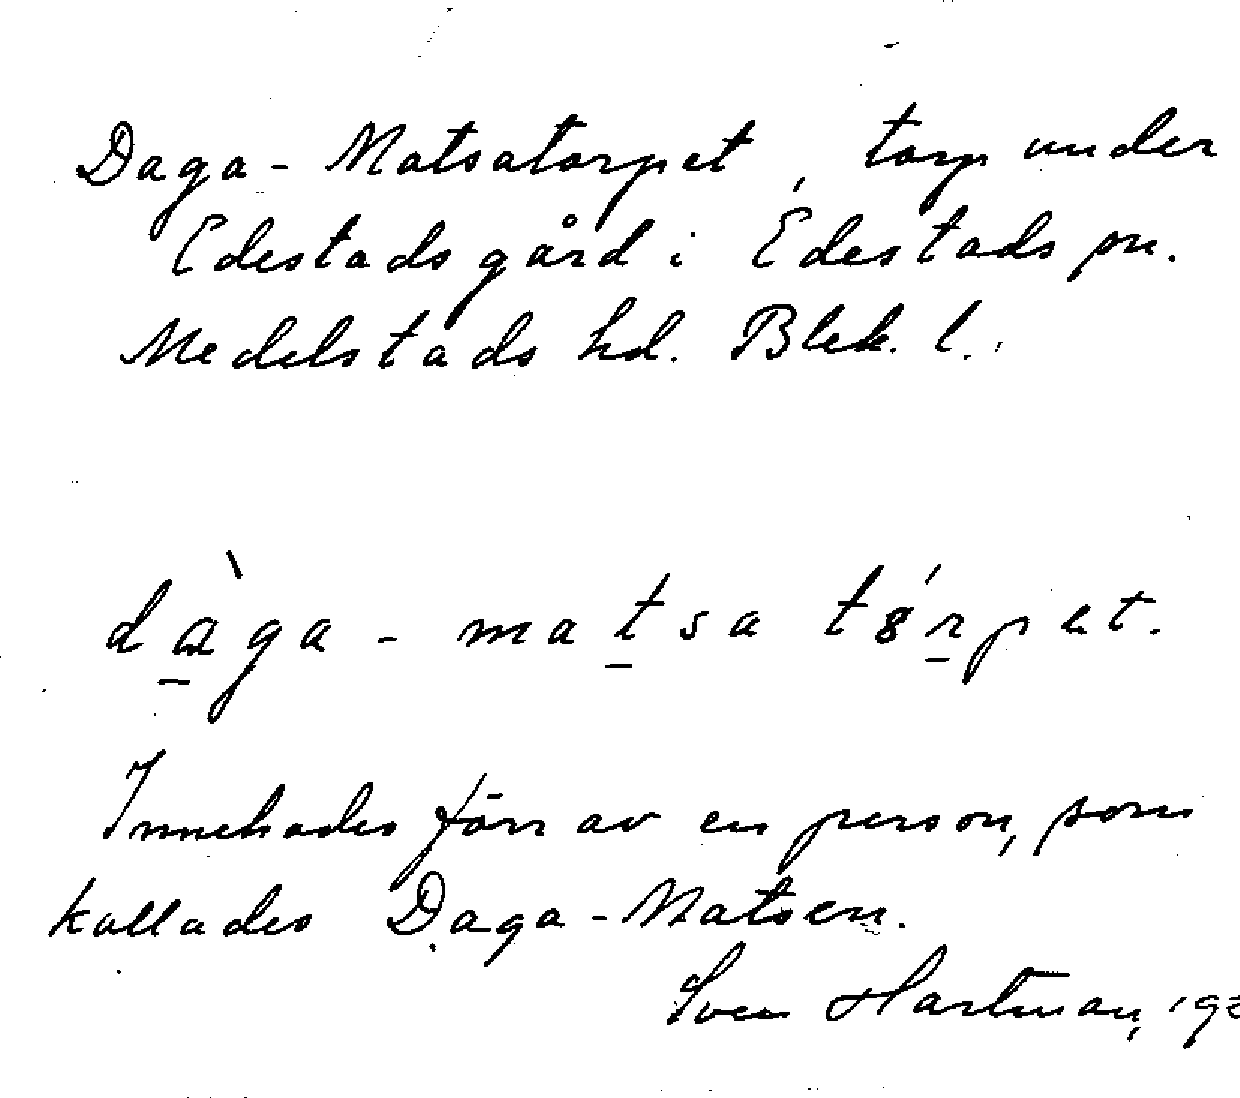 Daga-Matsatorpet, torp under
Edestads gård i Edestads sn.
Medelstads hd. Blek. l.
dàga-matsa tórpet.
Innehades förr av en person, som
kallades Daga-Matsen.
Sven Hartman,